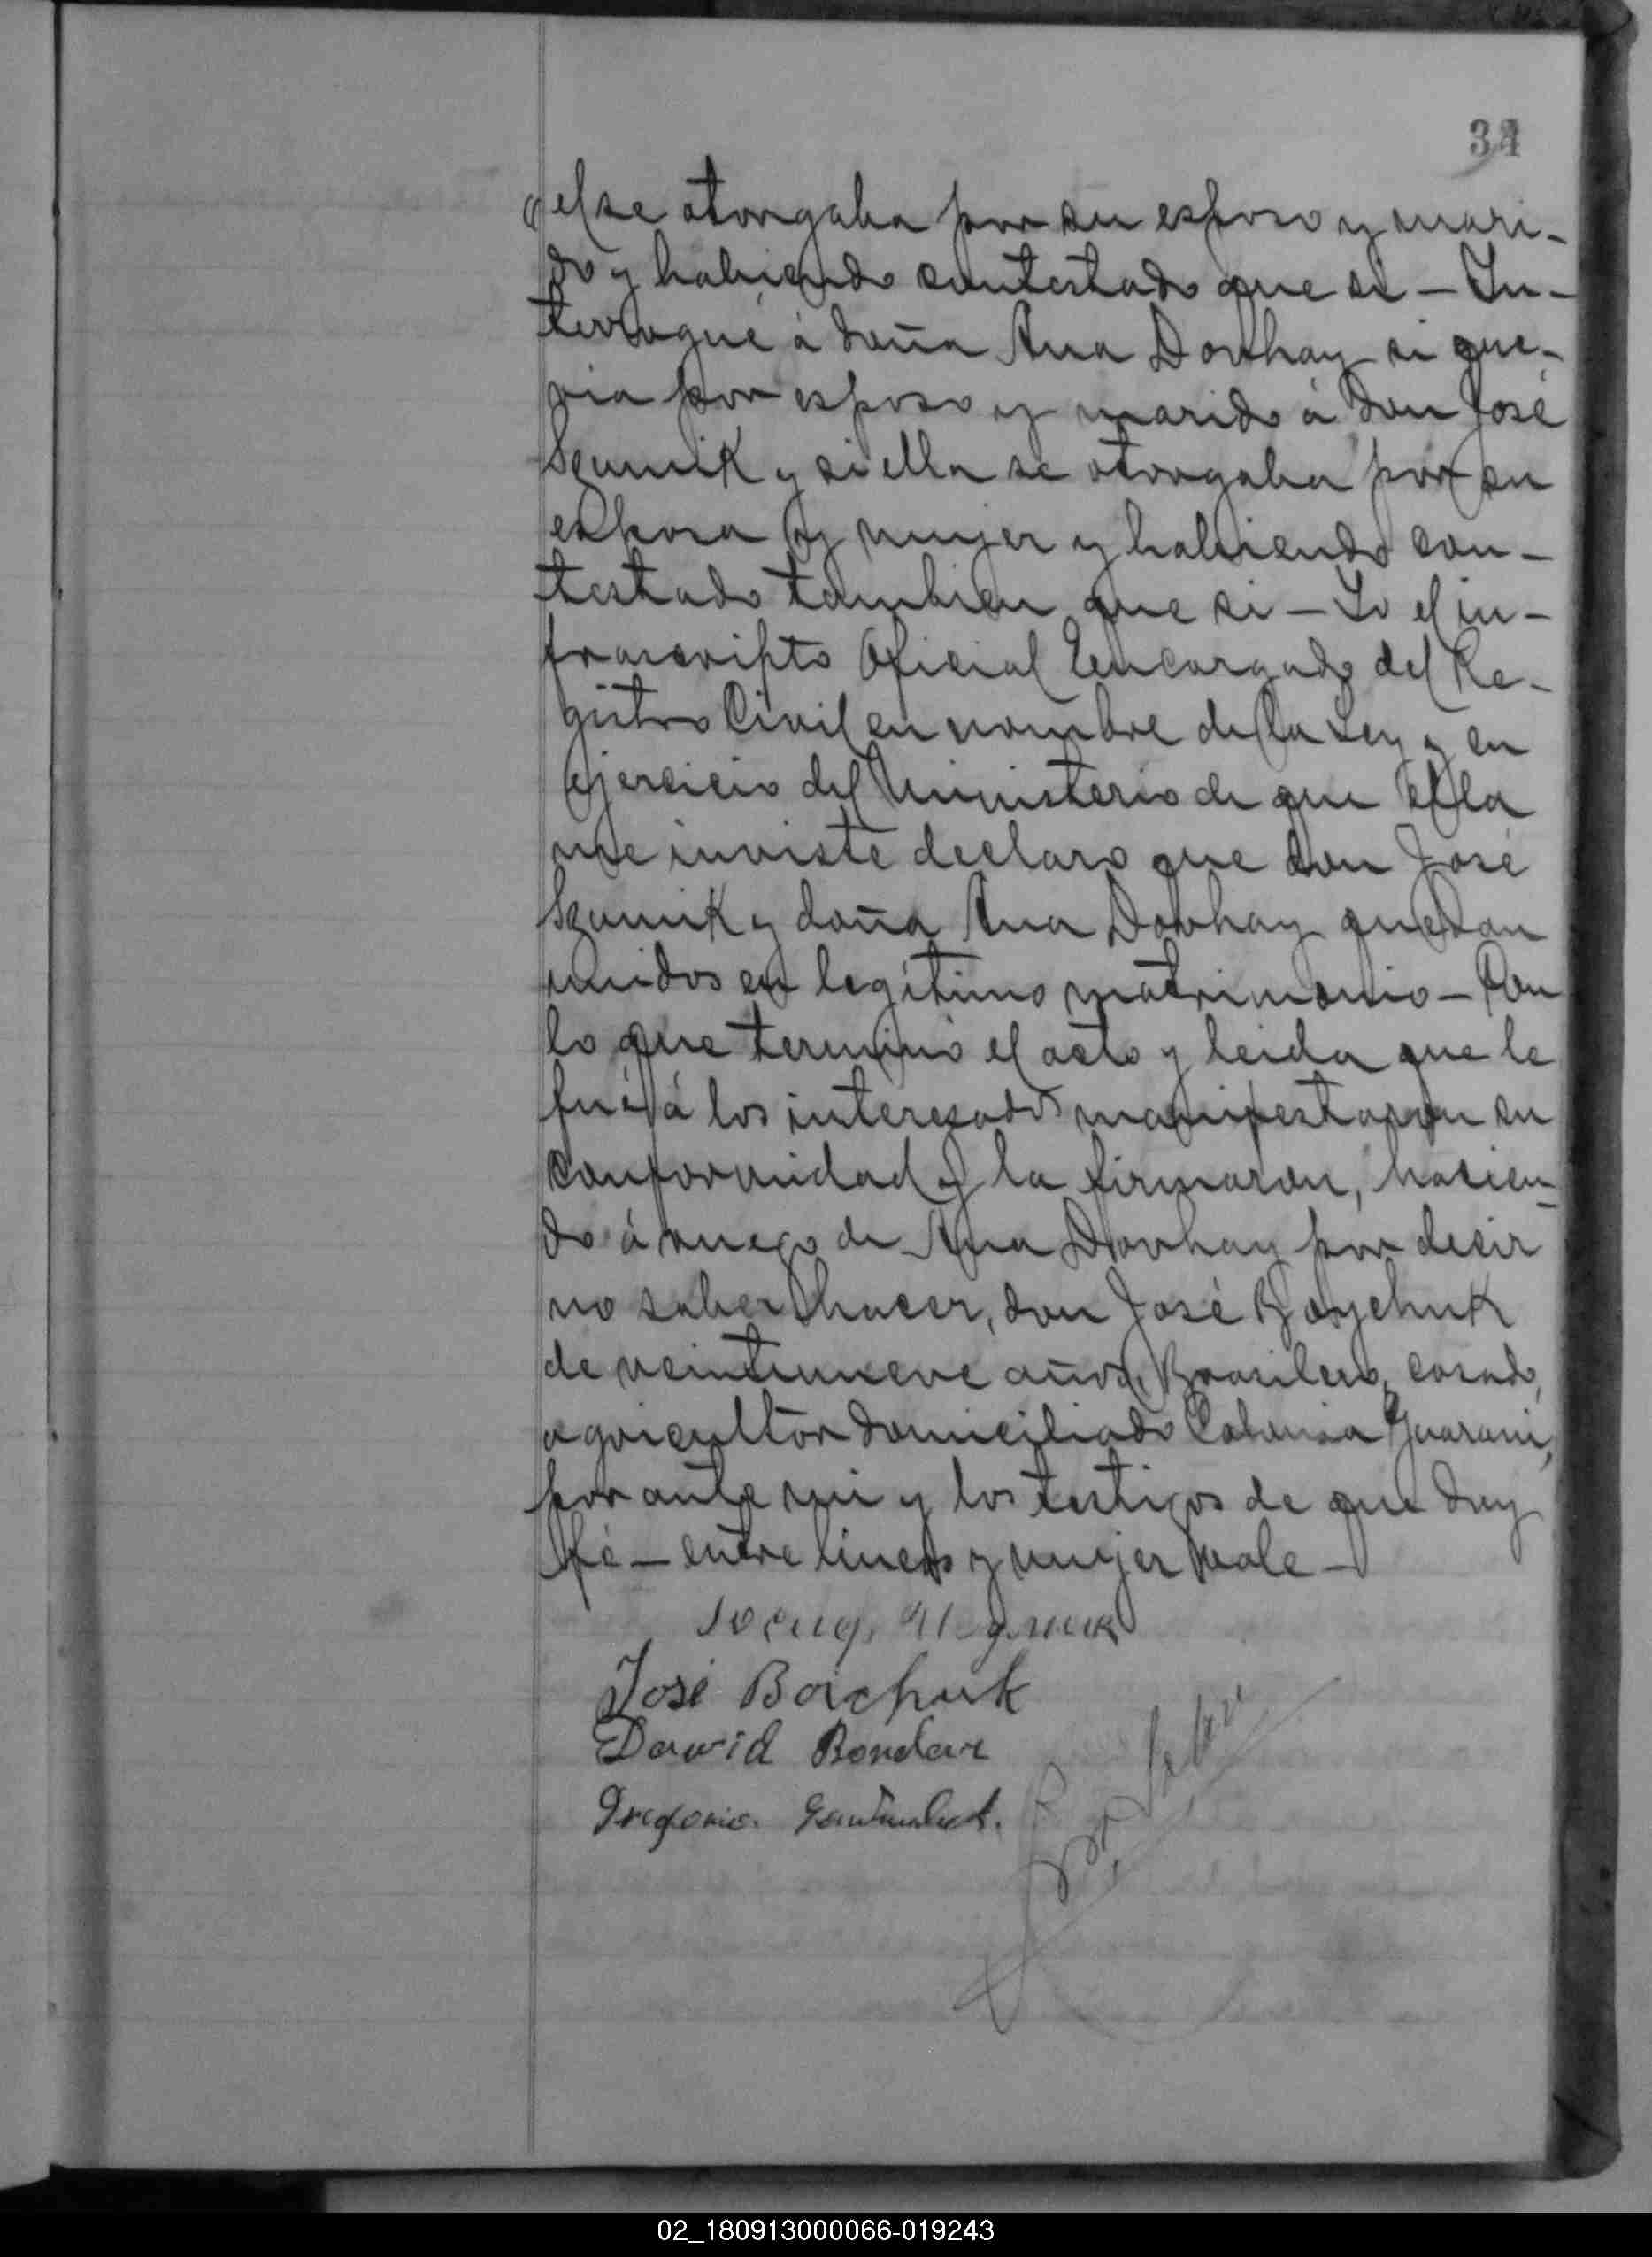 34
el se otorgaba por su esposo y mari-
do y habiendo contestado que si - In-
terrogué á doña Ana Dovhay si que-
ria por esposo y marido á don José
Szumik y si ella se otorgaba por su
esposa y mujer y habiendo con-
testado tambien que si - Yo el in-
frascripto Oficial Encargado del Re-
gistro Civil en nombre de la Ley y en
ejercicio del Ministerio de que ella
me inviste declaro que don José
Szumik y doña Ana Dovhay quedan
unidos en legítimo matrimonio - Con
lo que terminó el acto y leida que le
fué á los interesados manifestaron su
conformidad y la firmaron, hacien-
do á ruego de Ana Dovhay por decir
no saber hacer, don José Boychuk
de veintinueve años, Brasilero, casado,
agricultor domiciliado Colonia Guarani,
por ante mi y los testigos de que doy
fé - entre lineas y mujer vale -
José Boichuk
Dawid Bondar
Gregorio
02_180913000066-019243